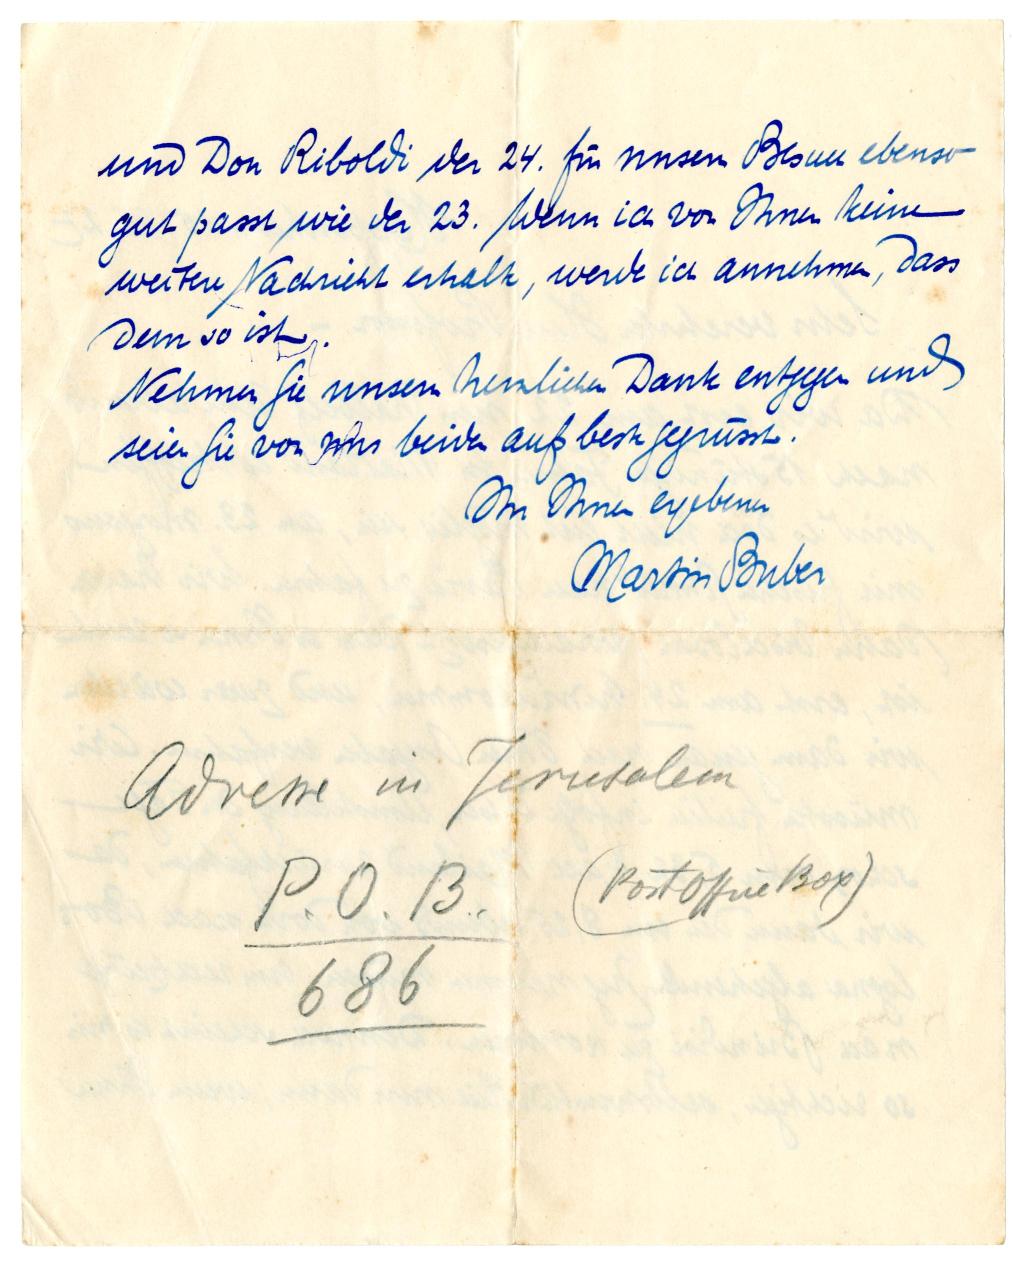 und Don Riboldi der 24. für unsern Besuch ebenso
gut passt wie der 23. Wenn ich von Ihnen keine
weitere Nachricht erhalte, werde ich annehmen, dass
dem so ist.
Nehmen Sie unsern herzlichen Dank entgegen und
seien Sie von uns beiden aufs beste gegrüsst.
Ihr Ihnen ergebener
Martin Buber
Adresse in Jerusalem
P.O.B. (Post Office Box)
686